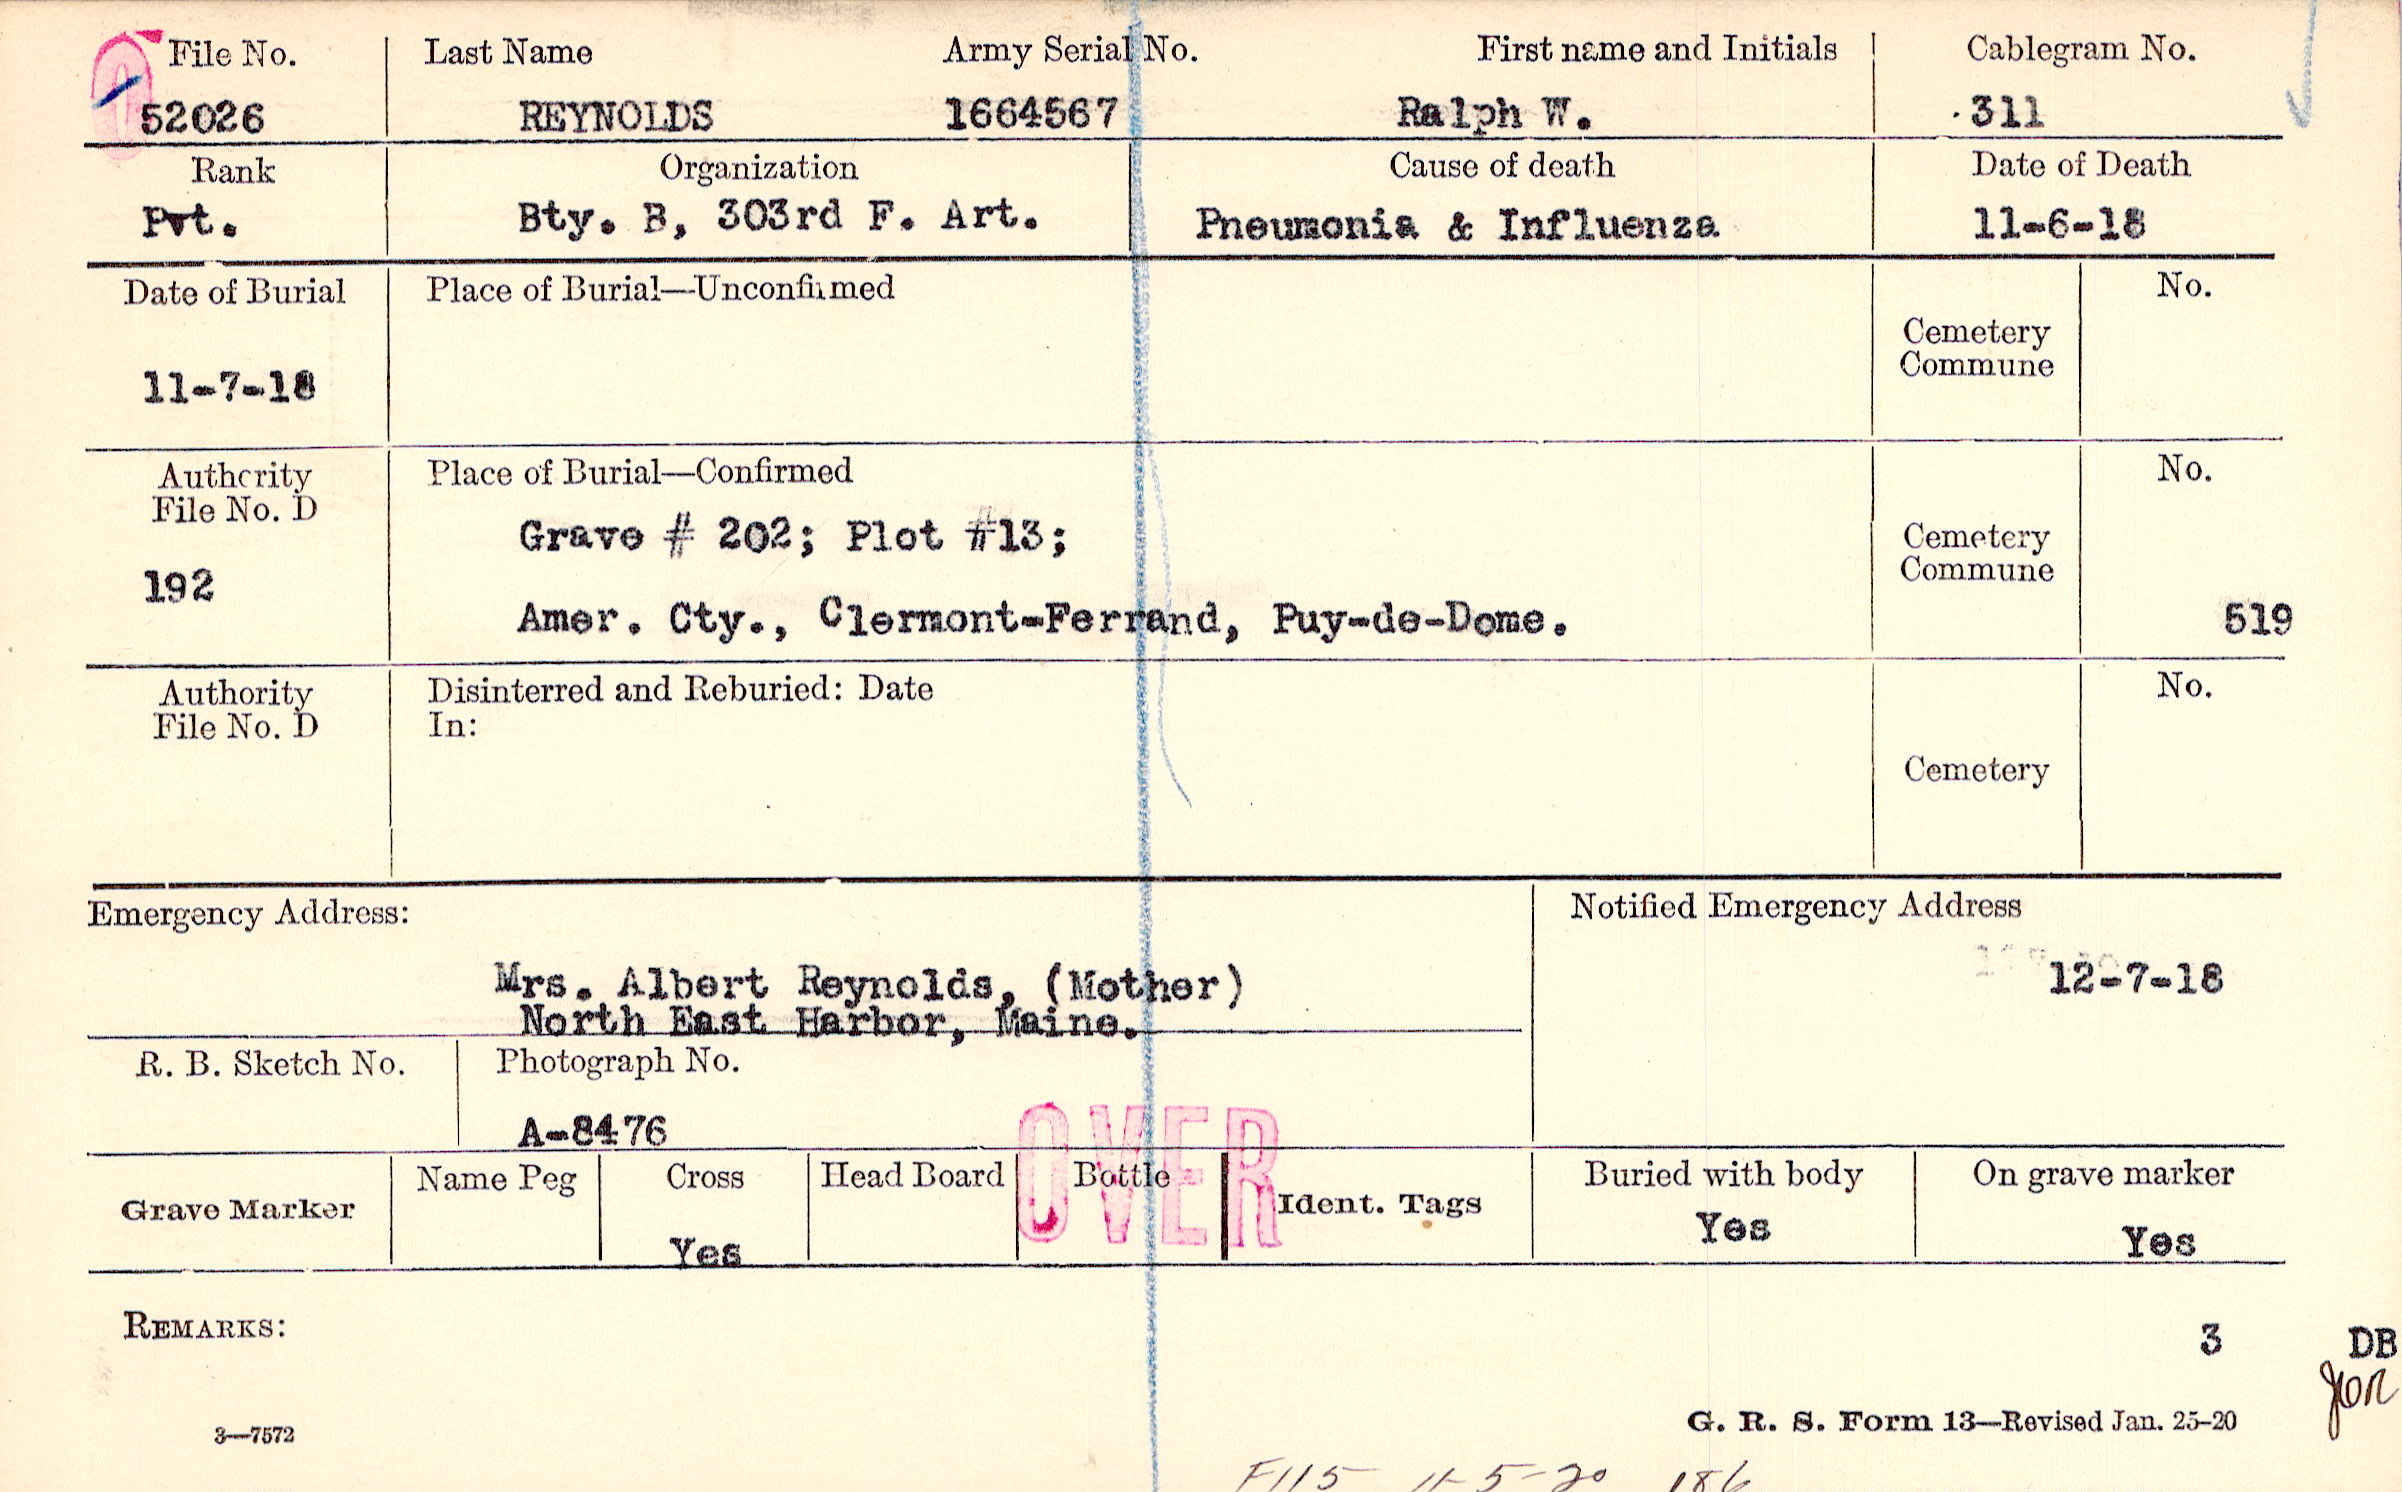 File No. Last Name Army Serial No. First name and Initials Cablegram No.
52026 REYNOLDS 1664567 Ralph W. 311
Rank Organization Cause of death Date of Death
Pvt. Bty. B, 303rd F. Art. Pneumonia & Influenza 11-6-18
Date of Burial Place of Burial—Unconfirmed No.
Cemetery
Commune
11-7-18
Authority Place of Burial—Confirmed No.
File No. D
Grave # 202; Plot #13; Cemetery
Commune
192
Amer. Cty., Clermont-Ferrand, Puy-de-Dome. 519
Authority Disinterred and Reburied: Date No.
File No. D In:
Cemetery
Emergency Address: Notified Emergency Address
Mrs. Albert Reynolds, (Mother) 12-7-18
North East Harbor, Maine.
R. B. Sketch No. Photograph No.
A-8476
OVER
Grave Marker Name Peg Cross Head Board Bottle Ident. Tags Buried with body On grave marker
Yes Yes Yes
REMARKS: 3 DB
3—7572 G. R. S. Form 13—Revised Jan. 25-20
F115 11-5-20 186